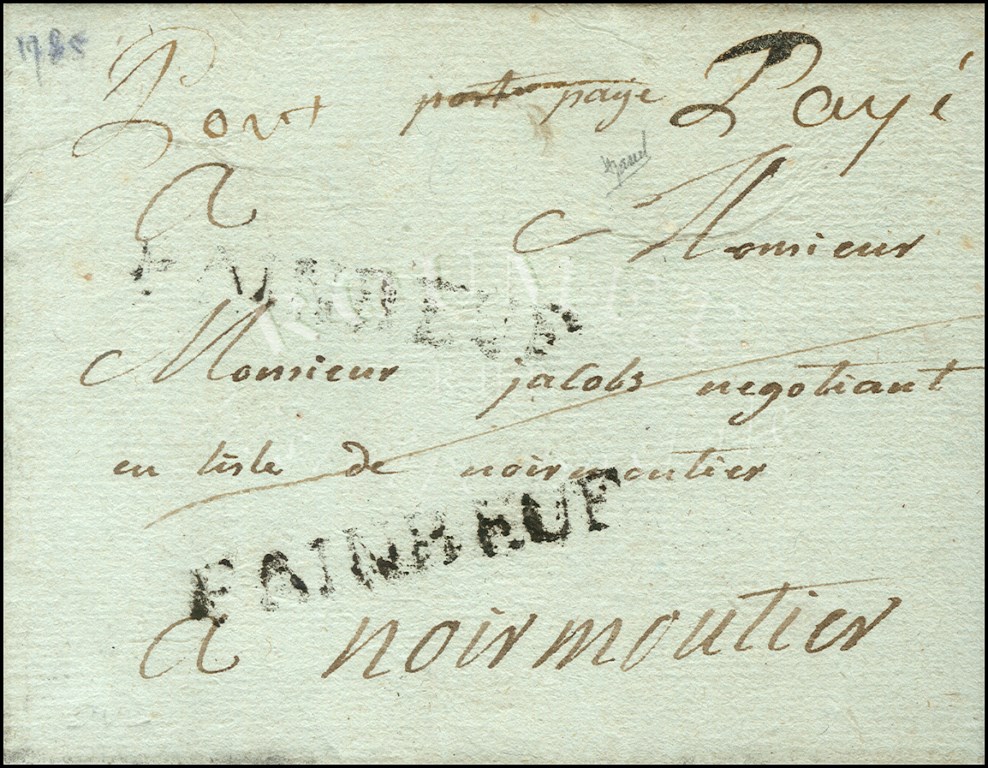 1785
Port port payé Payé
a Monsieur
Monsieur jacobs negotiant
en lisle de noirmoutier
PAINBEUF
a noirmoutier